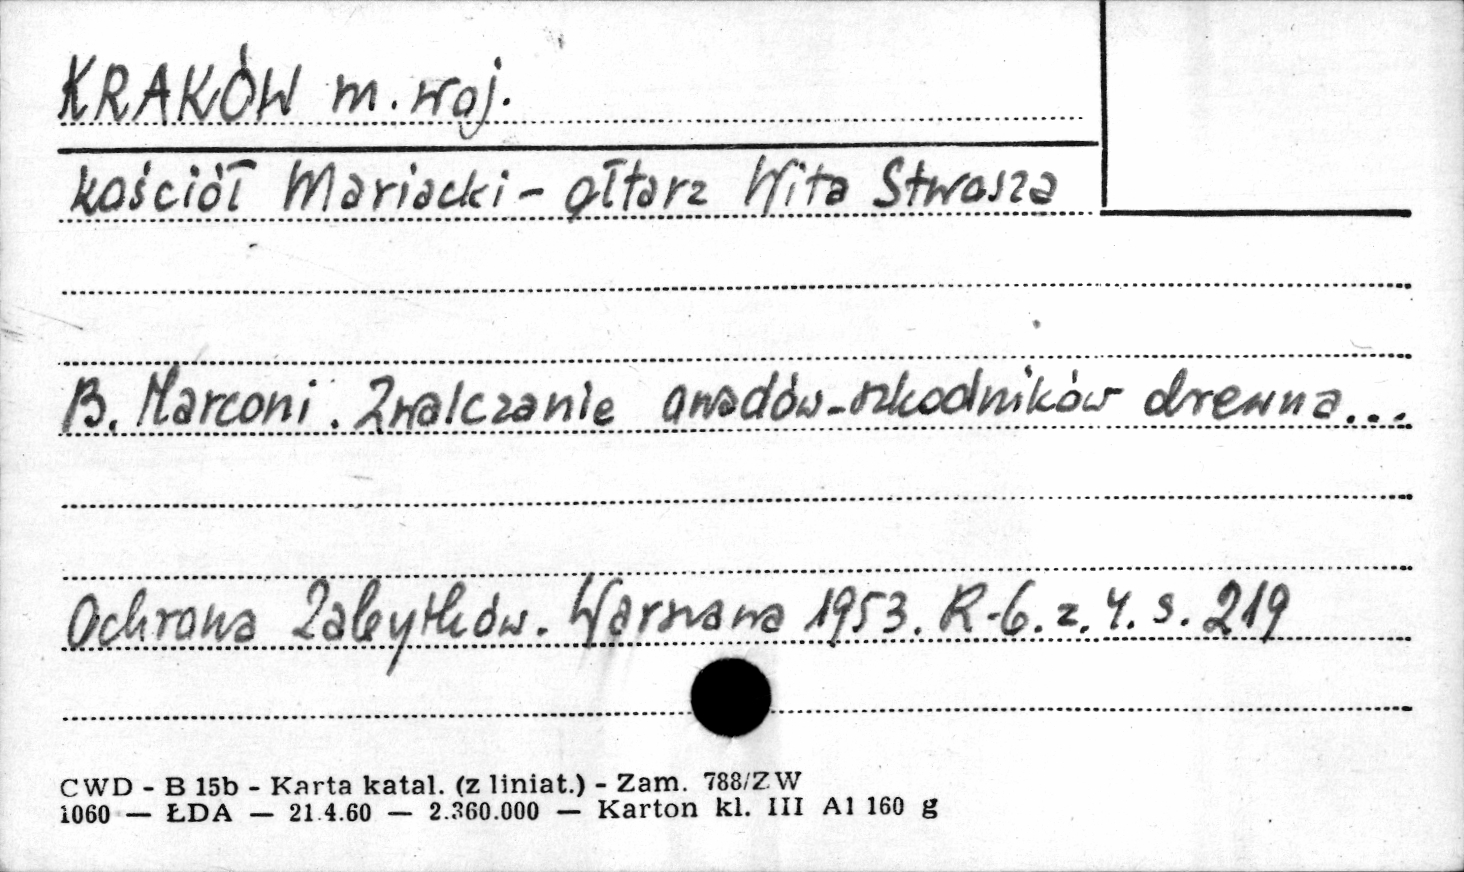 KRAKÓW m. woj.
kościół Mariacki - ołtarz Wita Stwosza
B. Marconi. Zwalczanie owadów-szkodników drewna...
Ochrona Zabytków. Warszawa 1953. R-6. z. 4. s. 219
CWD - B 15b - Karta katal. (z liniat.) - Zam. 788/ZW
1060 — ŁDA — 21.4.60 — 2.360.000 — Karton kl. III A1 160 g